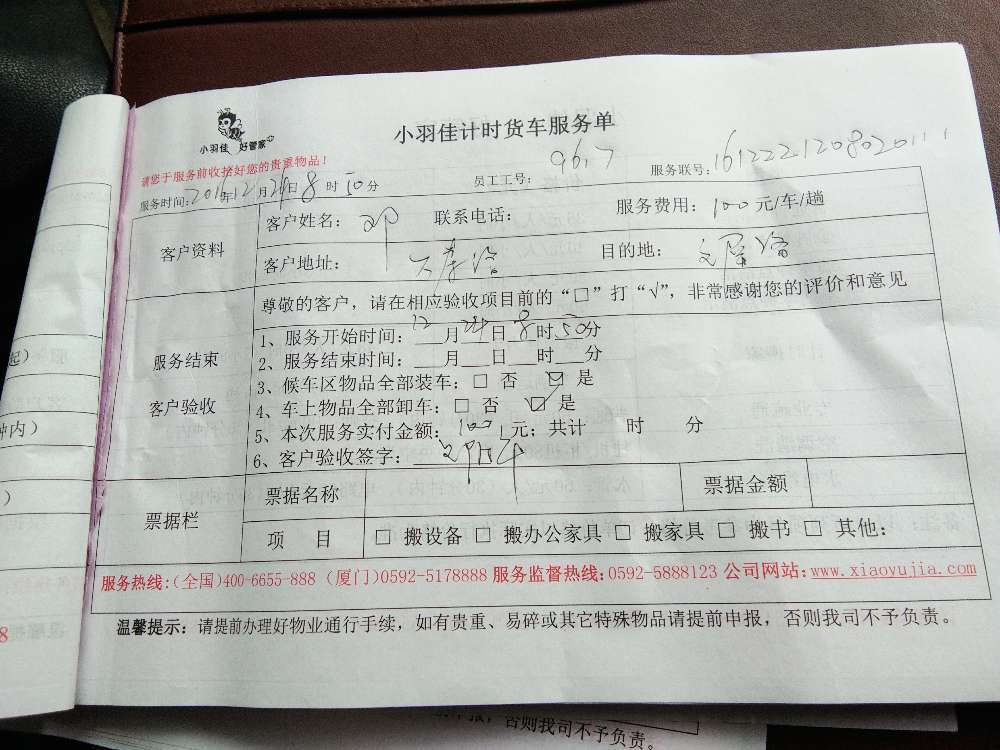 小羽佳 好管家
小羽佳计时货车服务单
请您于服务前收拾好您的贵重物品!
服务时间:2016年12月24日8时50分 员工工号: 9617 服务联号:161222120802011
客户资料
客户姓名: 联系电话: 服务费用:100元/车/趟
客户地址: 目的地:
尊敬的客户,请在相应验收项目前的“□”打“√”,非常感谢您的评价和意见
服务结束
客户验收
1、服务开始时间:12月24日8时50分
2、服务结束时间:__月__日__时__分
3、候车区物品全部装车:□ 否 ☑ 是
4、车上物品全部卸车:□ 否 ☑ 是
5、本次服务实付金额:100元;共计 时 分
6、客户验收签字:
票据栏
票据名称 票据金额
项 目 □ 搬设备 □ 搬办公家具 □ 搬家具 □ 搬书 □ 其他:
服务热线:(全国)400-6655-888 (厦门)0592-5178888 服务监督热线:0592-5888123 公司网站:www.xiaoyujia.com
温馨提示:请提前办理好物业通行手续,如有贵重、易碎或其它特殊物品请提前申报,否则我司不予负责。
起)
钟内)
)
8
否则我司不予负责。